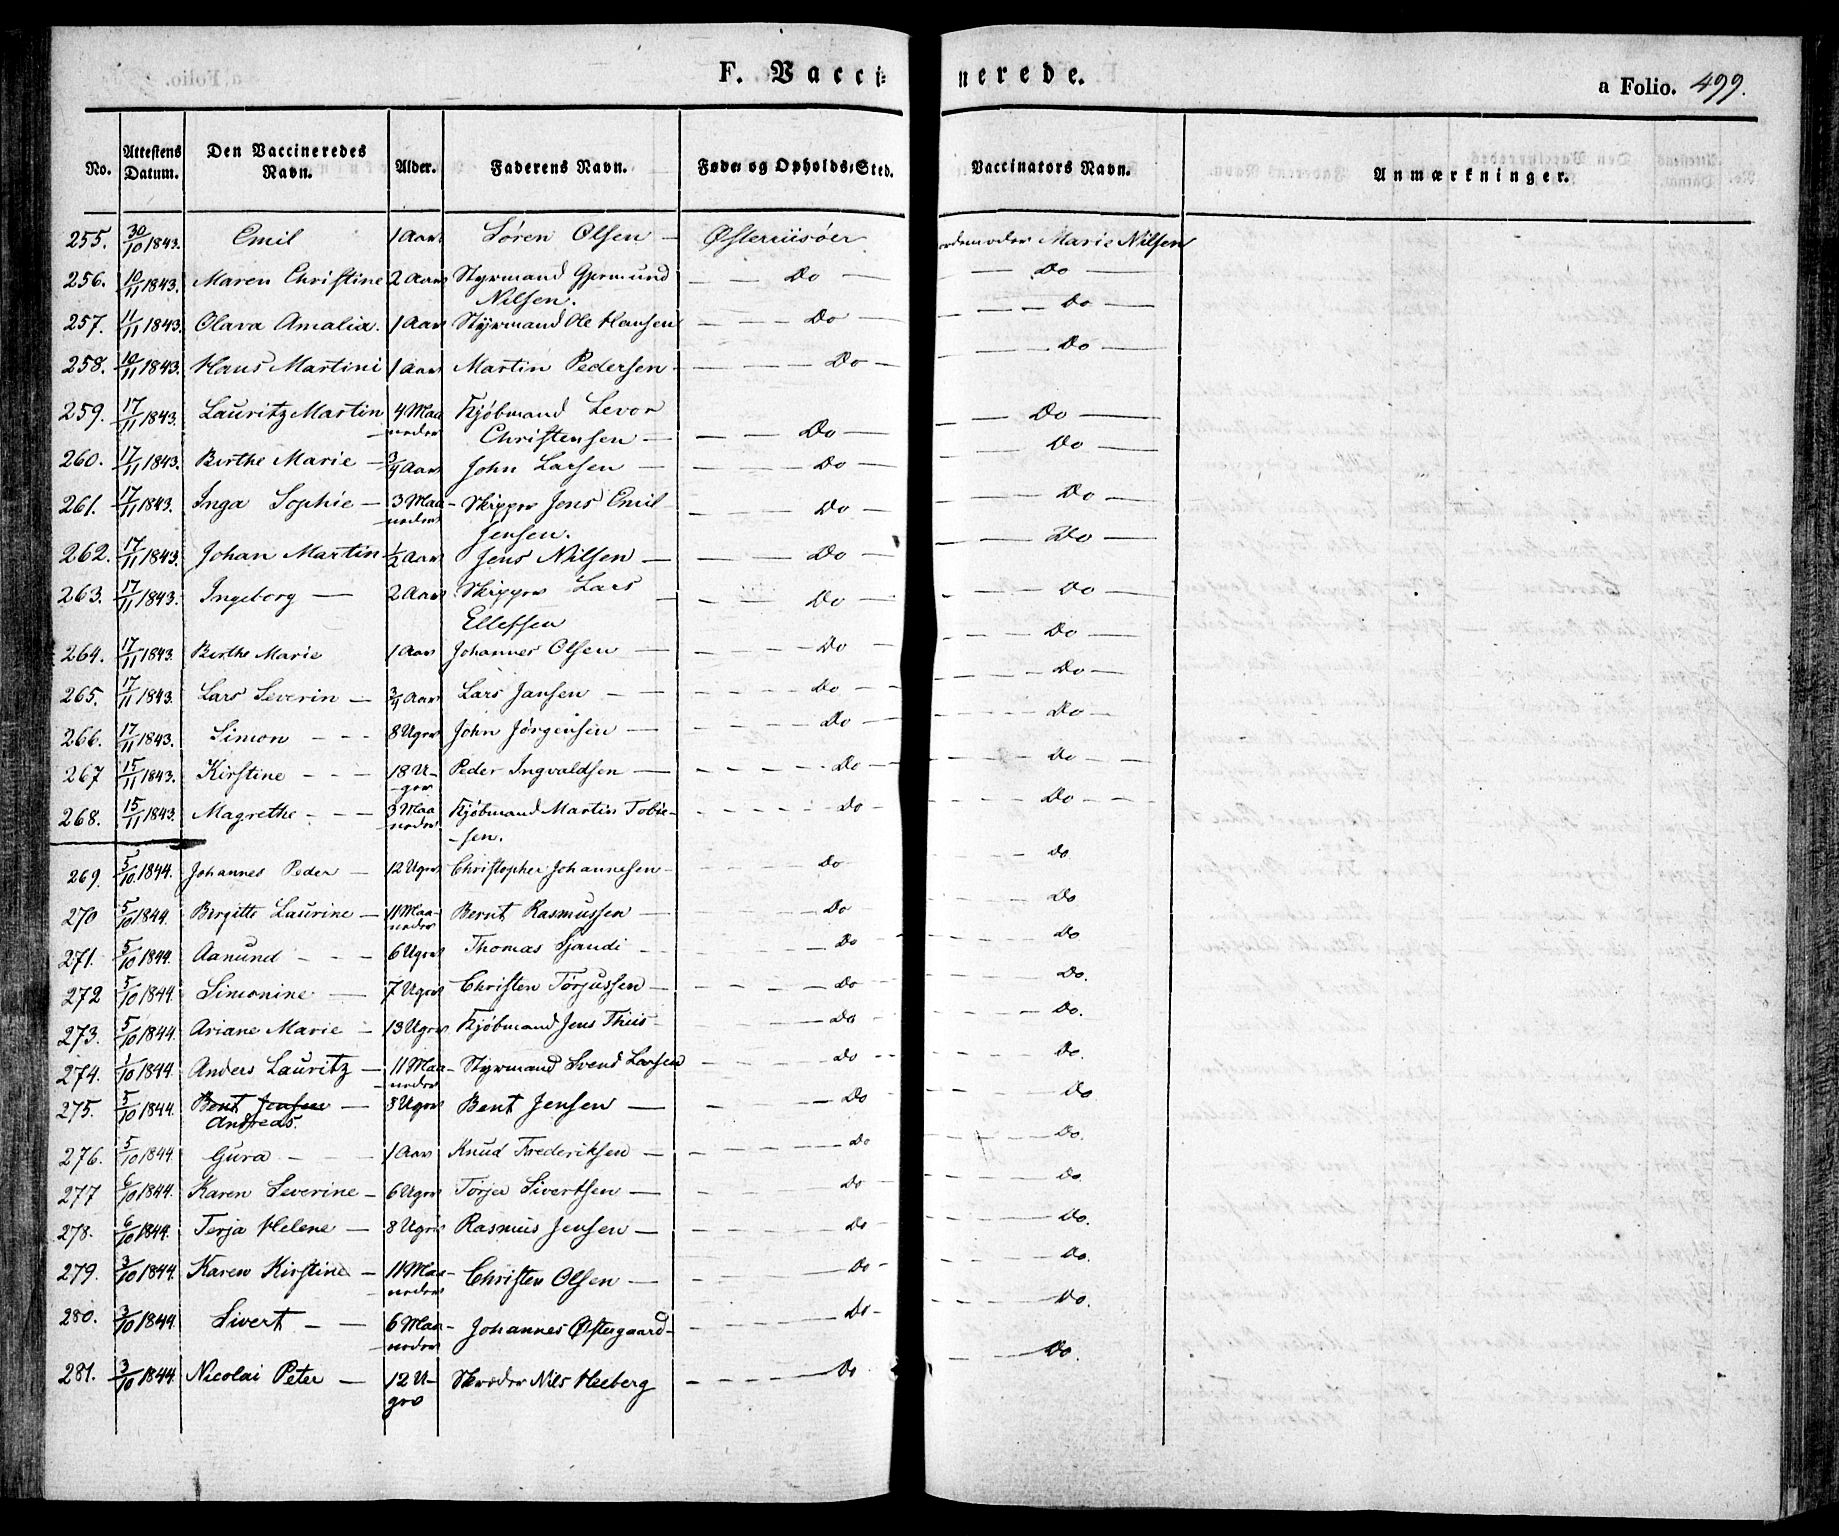 F. Vaccinerede.
a Folio. 499.
No. Attestens Datum. Den Vaccineredes Navn. Alder. Faderens Navn. Føde- og Opholds-Sted. Vaccinators Navn. Anmærkninger.
255. 30/10 1843. Emil 1 Aar Søren Olsen — Østeriisøer Jordemoder Marie Nilsen
256. 10/11 1843. Maren Christine 2 Aar Styrmand Gjermund — — Do — — Do —
Nilsen.
257. 11/11 1843. Olava Amalia. 1 Aar Styrmand Ole Hansen — — Do — — Do —
258. 10/11 1843. Hans Martini 1 Aar Martin Pedersen — — — Do — — Do —
259. 17/11 1843. Lauritz Martin 4 Maa Kjøbmand Levor — Do —
neder Christensen — — — Do —
260. 17/11 1843. Birthe Marie — 3/4 Aar John Larsen — — — Do — Do
261. 17/11 1843. Inga Sophie — 3 Maa- Skipper Jens Emil — — Do — — Do —
neder Jensen.
262. 17/11 1843. Johan Martin 1/2 Aar Jens Nilsen — — — Do — — Do —
263. 17/11 1843. Ingeborg — 2 Aar Skipper Lars — — Do — — Do —
Ellefsen
264. 17/11 1843 Birthe Marie 1 Aar Johannes Olsen — — — Do — — Do —
265. 17/11 1843. Lars Severin — 3/4 Aar Lars Jansen — — — Do — — Do —
266. 17/11 1843. Simon — — 8 Uger John Jørgensen — — — Do — — Do —
267 15/11 1843. Kirstine — — 18 U- Peder Ingvaldsen — — — Do — — Do —
ger
268. 15/11 1843. Magrethe — — 3 Maa Kjøbmand Martin Tobie- — — Do — — Do — —
neder -sen.
269. 5/10 1844. Johannes Peder — 12 Uger Christopher Johannesen — Do — do
270 5/10 1844. Birgitte Laurine — 11 Maa- Bernt Rasmussen — — — Do — Do
neder
271. 5/10 1844. Aanund — — 6 Uger Thomas — — — Do — — Do
272 5/10 1844. Simonine — 7 Uger Christen Torjussen — — — Do — — Do.
273. 5/10 1844. Ariane Marie — 13 Uger Kjøbmand Jens Thiis — — — Do — — Do.
274. 5/10 1844. Anders Lauritz — 11 Maa- Styrmand Svend Larsen — — do — — Do.
neder
275. 5/10 1844. Bent Jensen — 8 Uger Bent Jensen — — — Do — Do
Andreas.
276. 5/10 1844. Gura — — 1 Aar Knud Frederiksen — — — Do — Do.
277 6/10 1844. Karen Severine — 6 Uger Torjer Sivertsen — — — Do — do.
278. 6/10 1844. Terja Helene — 8 Uger Rasmus Jensen — — — Do — Do.
279. 3/10 1844. Karen Kirstine — 11 Maa- Christen Olsen — — — Do — Do.
neder
280. 3/10 1844 Sivert — — 6 Maa- Johannes Østergaard — — — Do — — Do.
neder
281. 3/10 1844. Nicolai Peter — 12 U- Skræder Nils Heeberg — — — Do — Do.
ger